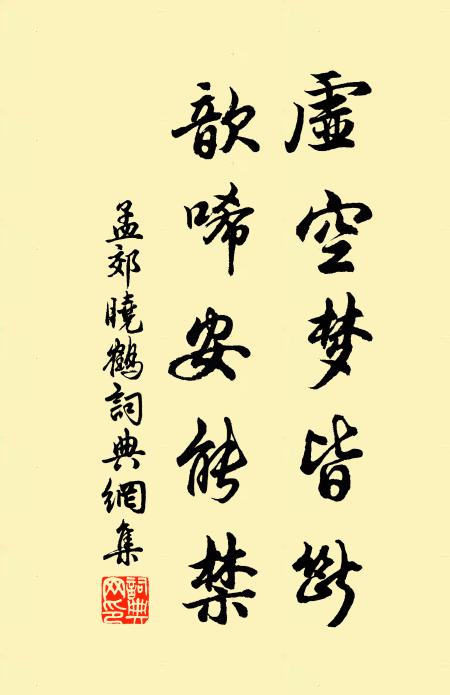 虛空梦皆断
歆唏安能禁
孟郊曉鶴詞典網集
詞典网印